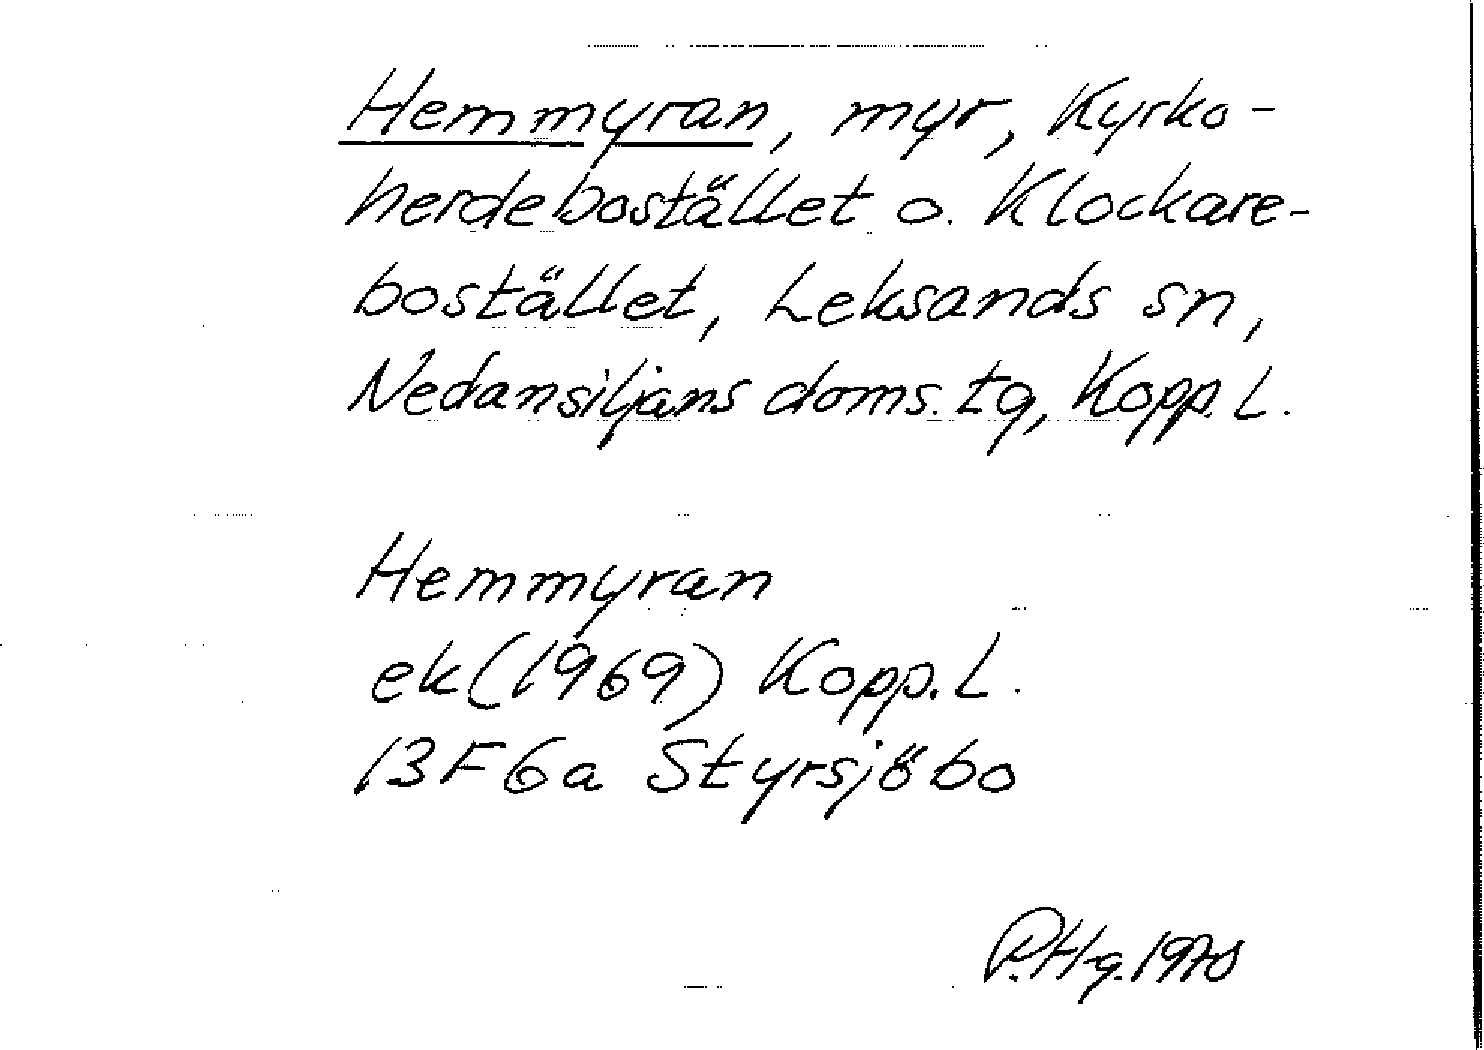 Hemmyran, myr, Kyrko-
herdebostället o. Klockare-
bostället, Leksands sn,
Nedansiljans doms. tg, Kopp. L.
Hemmyran
ek (1969) Kopp. L.
13F6a Styrsjöbo
P.Hg. 1978